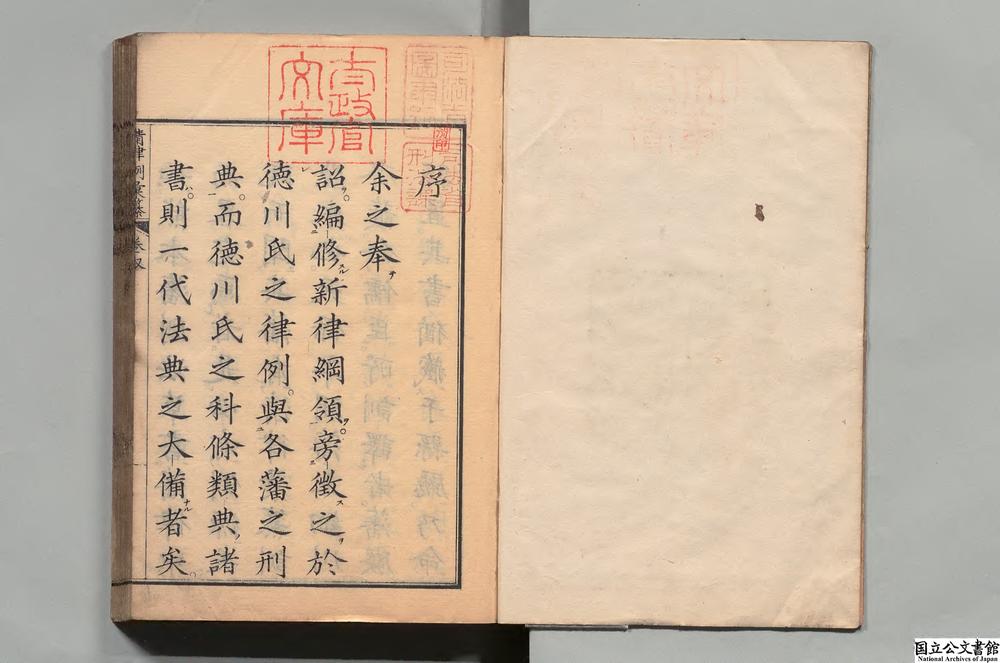 序
余之奉
詔編修新律綱領。旁徵之於
德川氏之律例。與各藩之刑
典。而德川氏之科條類典、諸
書。則一代法典之大備者矣
太政官
文庫
国立公文書館
National Archives of Japan